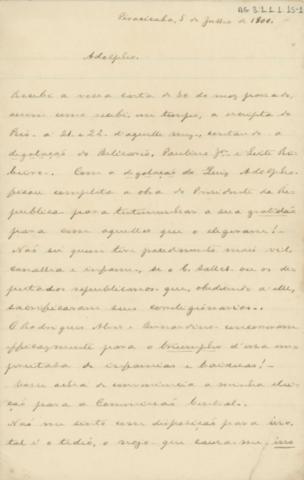 AG 3.1.1.1.15-1
Piracicaba, 5 de Julho de 1900.
Adolpho.
Recebi a vossa carta de 30 do mez passado,
assim como recebi, em tempo, a escripta do
Rio a 21 e 22 d'aquelle mez, contando a
degolação do Belisario, Paulino Jr. e Leite Ri-
beiro. Com a degolação do Luiz Adolpho
ficou completa a obra do Presidente da Re-
publica para testemunhar a sua gratidão
para com aquelles que o elegeram!
Não sei quem tem procedimento mais vil,
canalha e infame, se o C. Salles ou os de-
putados republicanos que, obedecendo a elle,
sacrificaram seus correligionarios.
O Rodrigues Alves e Bernardino concorreram
efficazmente para o triumpho d'essa em-
preitada de infamias e baixezas!
acho de conveniencia a minha elei-
ção para a Commissão Central.
Não me sinto com disposição para isso,
tal é o tedio, o nojo que causa-me isso